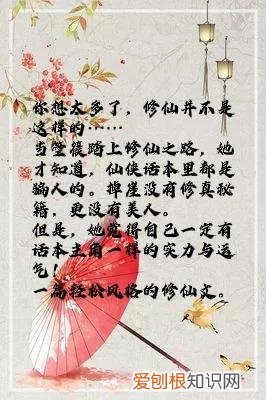 你想太多了，修仙并不是
这样的……
当堂篌踏上修仙之路，她
才知道，仙侠话本里都是
骗人的。掉崖没有修真秘
籍，更没有美人。
但是，她觉得自己一定有
话本主角一样的实力与运
气！
一篇轻松风格的修仙文。
爱刨根知识网